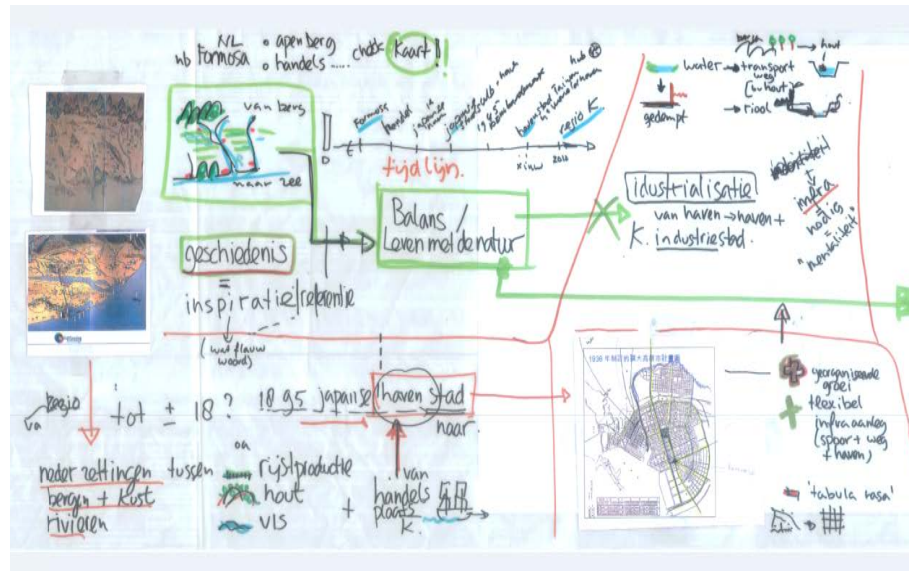 NL
nb Formosa
• apenberg
• handels .....
check Kaart!!
van berg
naar zee
Formosa
handel
1945
hub
regio K
tijdlijn.
Balans /
Leven met de natuur
geschiedenis
=
inspiratie/referentie
(wat flauw
woord)
water → transport
weg
(in hout)
hout
gedempt
→ riool
idustrialisatie
van haven → haven +
K. industriestad.
infra
nodig
=
"mentaliteit"
regio
va
tot ± 18 ?
1895 japanse haven stad
naar
nederzettingen tussen
bergen + kust
rivieren
oa
rijstproductie
hout
vis
+
van
handels
plaats
K.
1936 年制訂的擴大高雄市計畫圖
georganiseerde
groei
flexibel
infra aanleg
(spoor + weg
+ haven)
'tabula rasa'